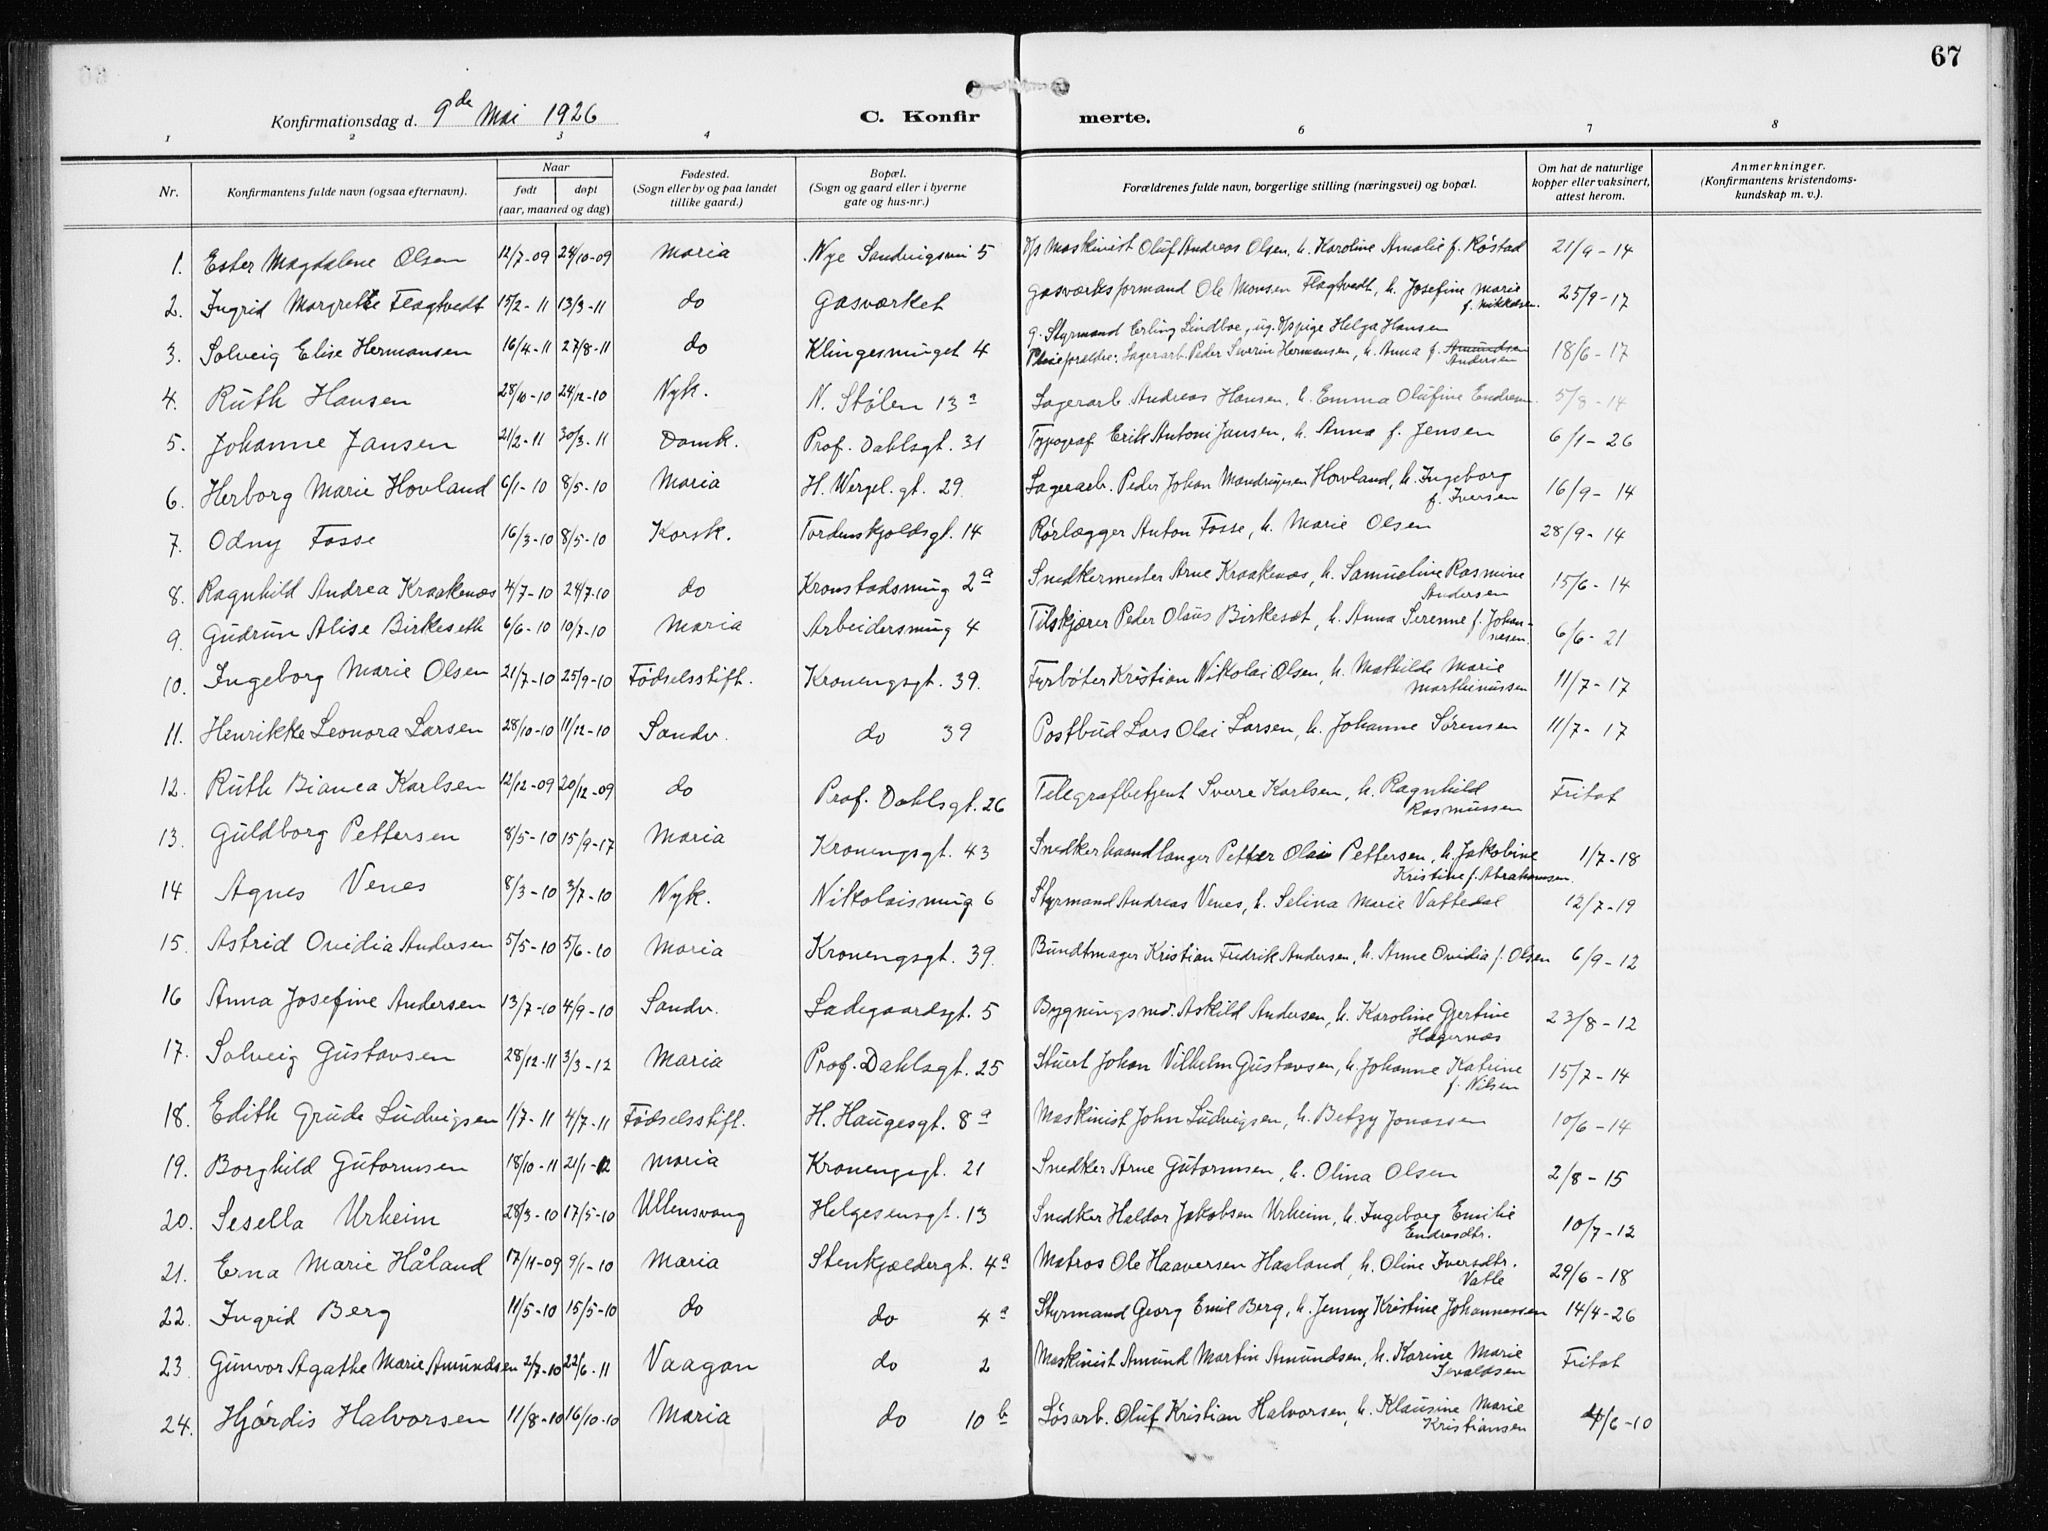 67
Konfirmationsdag d. 9de Mai 1926
C. Konfir merte.
1 2 3 4 6 7 8
Nr. Konfirmantens fulde navn (ogsaa efternavn). Naar født døpt (aar, maaned og dag) Fødested. (Sogn eller by og paa landet tillike gaard.) Bopæl. (Sogn og gaard eller i byerne gate og hus-nr.) Forældrenes fulde navn, borgerlige stilling (næringsvei) og bopæl. Om hat de naturlige kopper eller vaksinert, attest herom. Anmerkninger. (Konfirmantens kristendomskundskap m. v.).
1. Ester Magdalene Olsen 12/7-09 24/10-09 Maria Nye Sandvigsvei 5 D/s Maskinist Oluf Andreas Olsen, h. Karoline Amalie f. Røstad 21/9-14
2. Ingrid Margrethe Flagtvedt 15/2-11 13/3-11 do Gasværket Gasværksformand Ole Monsen Flagtvedt, h. Josefine Marie f. Mikkelsen. 25/9-17
3. Solveig Elise Hermansen 16/4-11 27/8-11 do Klingesmuget 4 g. Styrmand Erling Lindboe, ug. D/spige Helga Hansen
Pleieforældre: Lagerarb. Peder Severin Hermansen, h. Anna f. Amundsen Andersen 18/6-17
4. Ruth Hansen 28/10-10 24/12-10 Nyk. N. Stølen 13a Lagerarb. Andreas Hansen, h. Emma Olufine Endresen. 5/8-14
5. Johanne Jansen 21/2-11 30/3-11 Domk. Prof. Dahlsgt. 31 Typograf Erik Antoni Jansen, h. Anna f. Jensen 6/1-26
6. Herborg Marie Hovland 6/1-10 8/5-10 Maria H. Wergel. gt. 29. Lagerarb. Peder Johan Mandrupsen Howland, h. Ingeborg f. Iversen 16/9-14
7. Odny Fosse 16/3-10 8/5-10 Korsk. Tordenskjoldsgt. 14 Rørlægger Anton Fosse, h. Marie Olsen 28/9-14
8. Ragnhild Andrea Kraakenæs 4/7-10 24/7-10 do Kronstadsmug 2a Snedkermester Arne Kraakenæs, h. Samueline Rasmine Andersen 15/6-14
9 Gudrun Alise Birkeseth 6/6-10 10/7-10 Maria Arbeidersmug 4 Tilskjærer Peder Olaus Birkesæt, h. Anna Serenne f. Johannesen. 6/6-21
10. Ingeborg Marie Olsen 21/7-10 25/9-10 Fødselsstift. Kronengsgt. 39. Fyrbøter Kristian Nikolai Olsen, h. Mathilde Marie Marthinussen 11/7-17
11. Henrikke Leonora Larsen 28/10-10 11/12-10 Sandv. do 39 Postbud Lars Olai Larsen, h. Johanne Sørensen 11/7-17
12. Ruth Bianca Karlsen 12/12-09 20/12-09 do Prof. Dahlsgt. 26 Telegrafbetjent Sverre Karlsen, h. Ragnhild Rasmussen Fritat
13. Guldborg Pettersen 8/5-10 15/9-17 Maria Kronengsgt. 43 Snedkerhaandlanger Petter Olai Pettersen, h. Jakobine Kristine f. Abrahamsen. 1/7-18
14 Agnes Venes 8/3-10 3/7-10 Nyk. Nikolaismug 6 Styrmand Andreas Venes, h. Selina Marie Vattedal 12/7-19
15. Astrid Ovidia Andersen 5/5-10 5/6-10 Maria Kronengsgt. 39. Bundtmager Kristian Fredrik Andersen, h. Anne Ovidia f. Olsen 6/9-12
16 Anna Josefine Andersen 13/7-10 4/9-10 Sandv. Ladegaardsgt. 5 Bygningsmd. Askild Andersen, h. Karoline Gjertine Hagernæs 23/8-12
17. Solveig Gustavsen 28/12-11 3/3-12 Maria Prof. Dahlsgt. 25 Stuert Johan Vilhelm Gustavsen, h. Johanne Katrine f. Nilsen 15/7-14
18. Edith Grude Ludvigsen 1/7-11 4/7-11 Fødselsstift. H. Haugesgt. 8a Maskinist John Ludvigsen, h. Betzy Jonassen 10/6-14
19. Borghild Gutormsen 18/10-11 21/1-12 Maria Kronengsgt. 21 Snedker Arne Gutormsen, h. Olina Olsen 2/8-15
20. Sesella Urheim 28/3-10 17/5-10 Ullensvang Helgesensgt. 13 Snedker Haldor Jakobsen Urheim, h. Ingeborg Emilie Endresdtr. 10/7-12
21. Erna Marie Håland 17/11-09 9/1-10 Maria Stenkjældergt. 4a Matros Ole Haaversen Haaland, h. Oline Iversdtr. Vatle 29/6-18
22. Ingrid Berg 11/5-10 15/5-10 do do 4a Styrmand Georg Emil Berg, h. Jenny Kristine Johannessen 14/4-26
23 Gunvor Agathe Marie Amundsen 2/7-10 22/6-11 Vaagan do 2 Maskinist Amund Martin Amundsen, h. Karine Marie Sevaldsen Fritat
24. Hjørdis Halvorsen 11/8-10 16/10-10 Maria do 10b Løsarb. Oluf Kristian Halvorsen, h. Klausine Marie Kristiansen 4/6-10